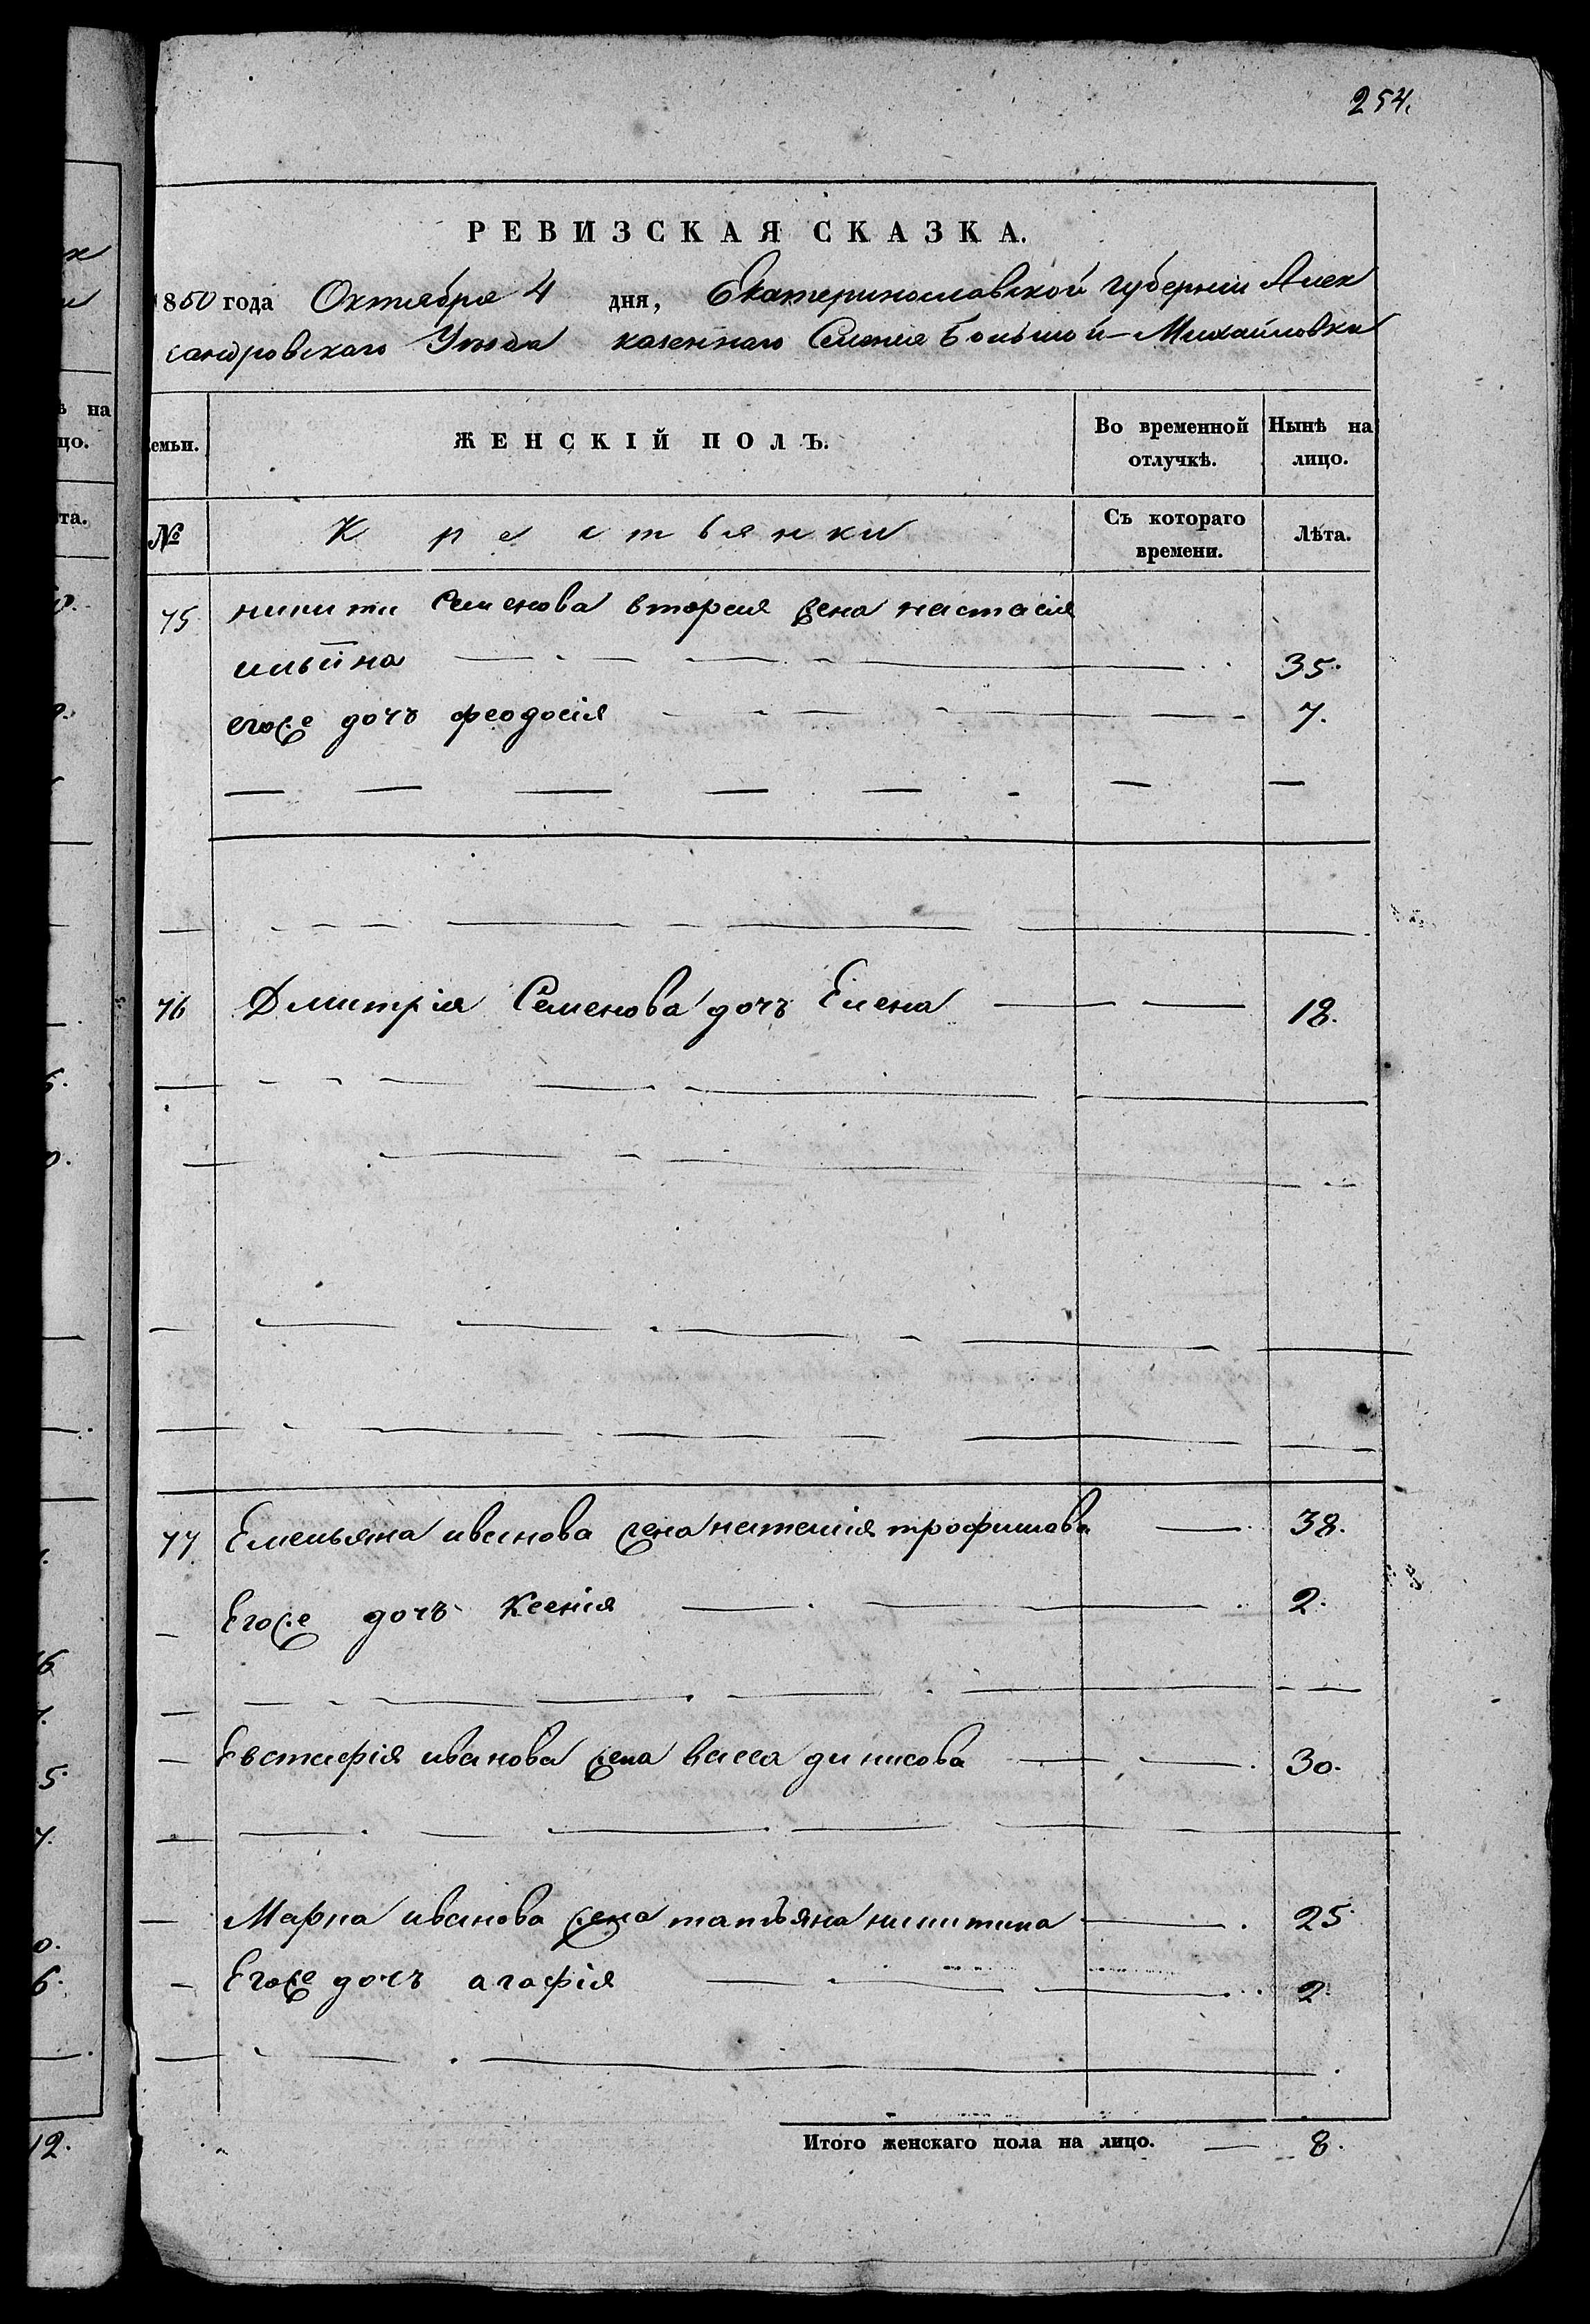 254.
РЕВИЗСКАЯ СКАЗКА.
1850 года Октября 4 дня, Екатеринославской губерніи Алек
сандровскаго Уѣзда казеннаго Селенія Большой-Михайловки
емьи. ЖЕНСКІЙ ПОЛЪ. Во временной отлучкѣ. Нынѣ на лицо.
№ Крестьянки Съ котораго времени. Лѣта.
75 никиты Семенова вторая жена настасія
ильина 35.
егоже дочь феодосія 7.
76 Дмитрія Семенова дочь Елена 18.
77 Емельяна иванова жена наталія трофимова 38.
Егоже дочь Ксенія 2.
Евстафія иванова жена васса денисова 30.
Марка иванова жена татьяна никитина 25
Егоже дочь агафія 2
Итого женскаго пола на лицо. 8.